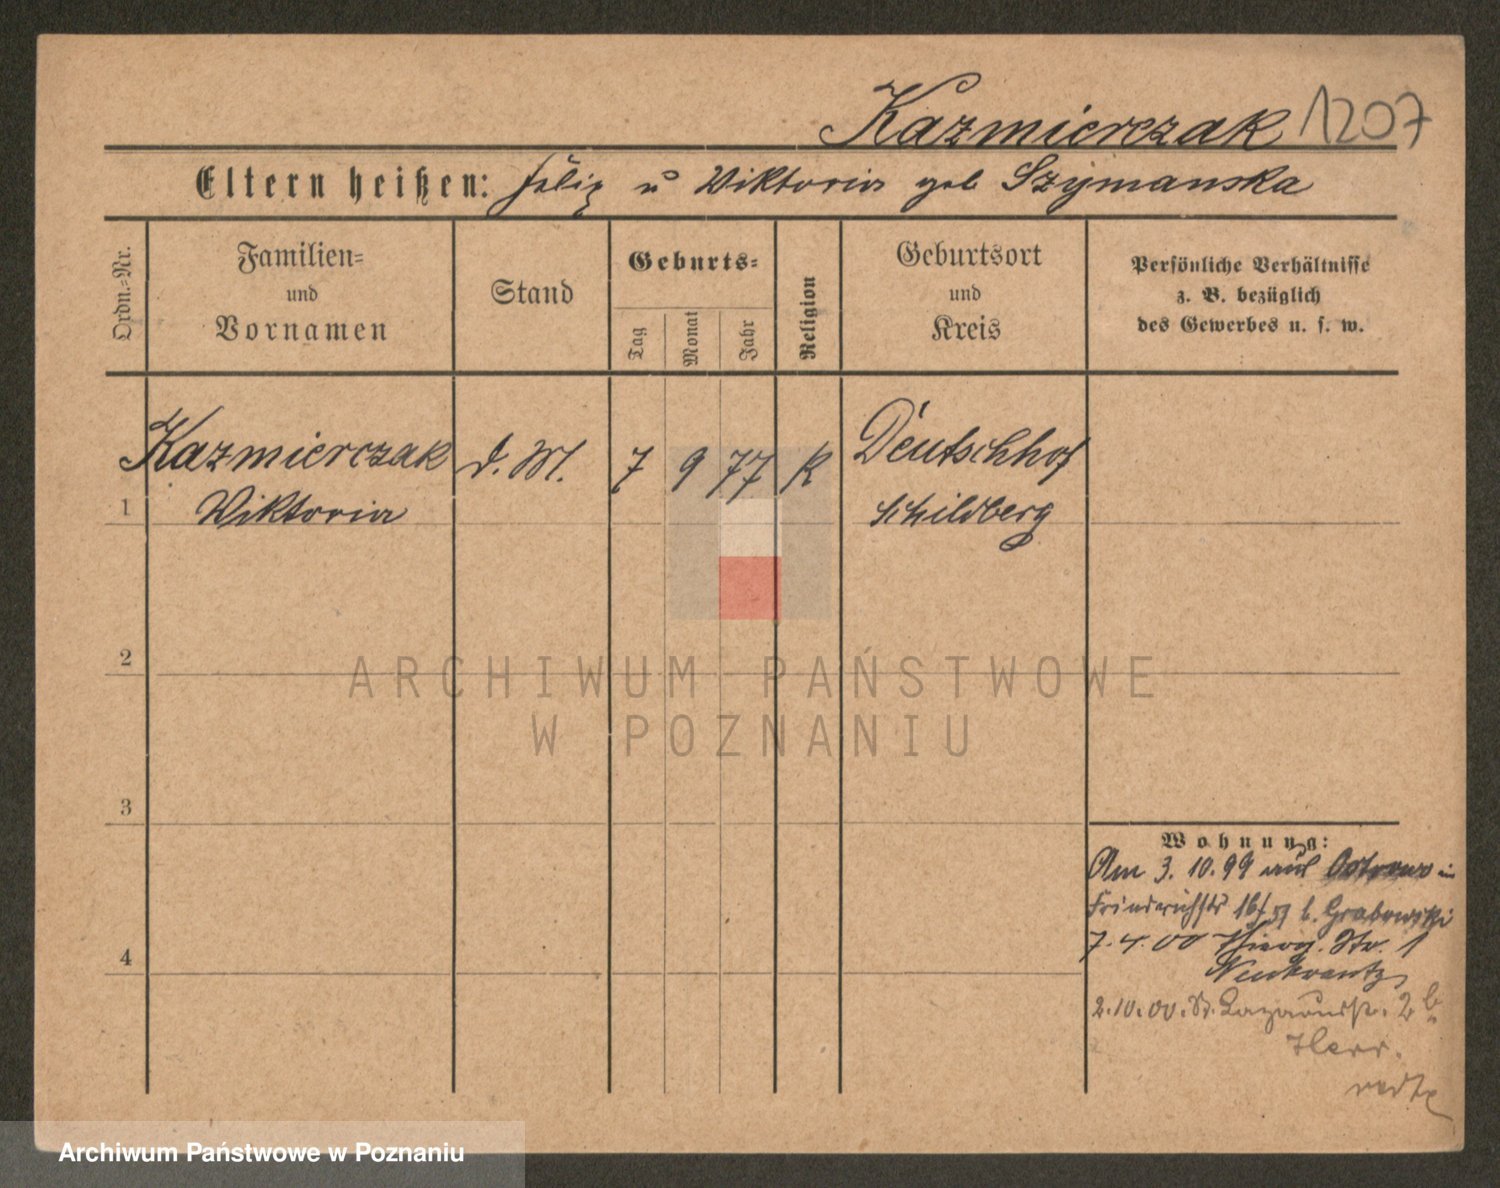 Kazmierczak 1207
Eltern heißen: Felix u Wiktoria geb Szymanska
Ordn.-Nr.
Familien-
und
Vornamen
Stand
Geburts-
Tag
Monat
Jahr
Religion
Geburtsort
und
Kreis
Persönliche Verhältnisse
z. B. bezüglich
des Gewerbes u. s. w.
Kazmierczak d. M. 7 9 77 K Deutschhof
1 Wiktoria Schildberg
2
3
4
Wohnung:
Am 3. 10. 99 aus Ostrowo in
b. Grabowski
7. 4. 00 Str. 1
Neukrantz
2. 10. 00. St. 2 b
Herr.
ARCHIWUM PAŃSTWOWE
W POZNANIU
Archiwum Państwowe w Poznaniu